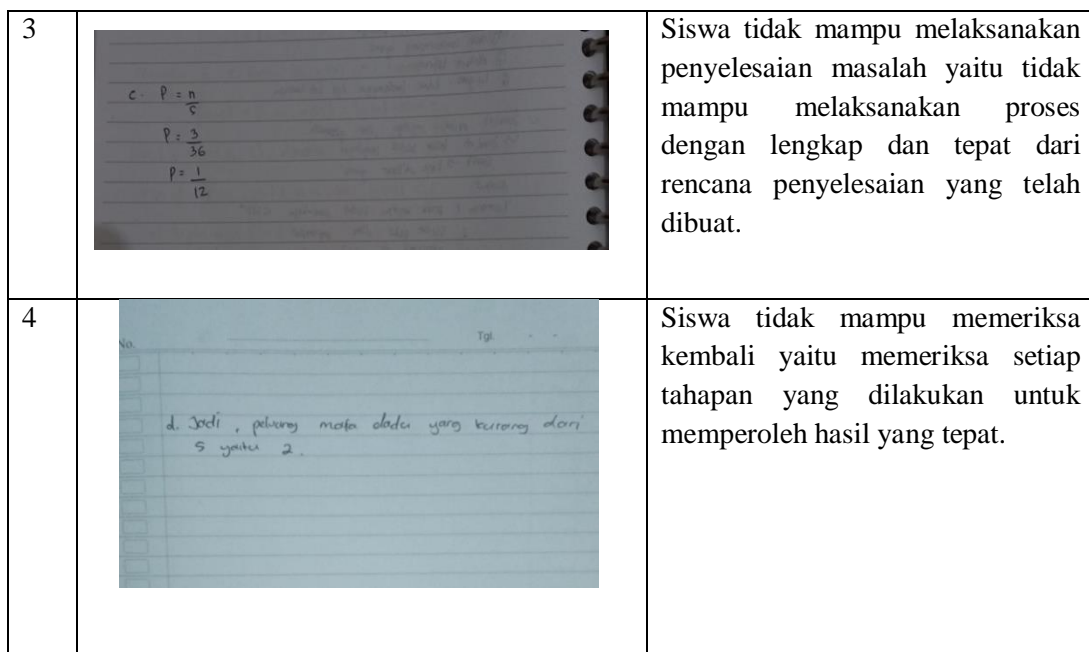 3
c. P = n
s
P = 3
36
P = 1
12
Siswa tidak mampu melaksanakan
penyelesaian masalah yaitu tidak
mampu melaksanakan proses
dengan lengkap dan tepat dari
rencana penyelesaian yang telah
dibuat.
4
No.
Tgl.
d. Jadi, peluang mata dadu yang kurang dari
5 yaitu 2.
Siswa tidak mampu memeriksa
kembali yaitu memeriksa setiap
tahapan yang dilakukan untuk
memperoleh hasil yang tepat.